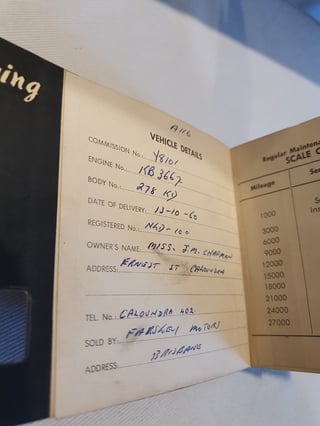 ing
A116
VEHICLE DETAILS
COMMISSION No. Y8101
ENGINE No. KB3667
BODY No. 278 KD
DATE OF DELIVERY 13-10-60
REGISTERED No. NGD-100
OWNER'S NAME: MISS. J.M. CHAPMAN
ADDRESS: ERNEST ST CALOUNDRA
TEL. No. CALOUNDRA 402.
SOLD BY: FARSLEY MOTORS
ADDRESS: BRISBANE
Regular Mainten
SCALE
Mileage
1000
3000
6000
9000
12000
15000
18000
21000
24000
27000